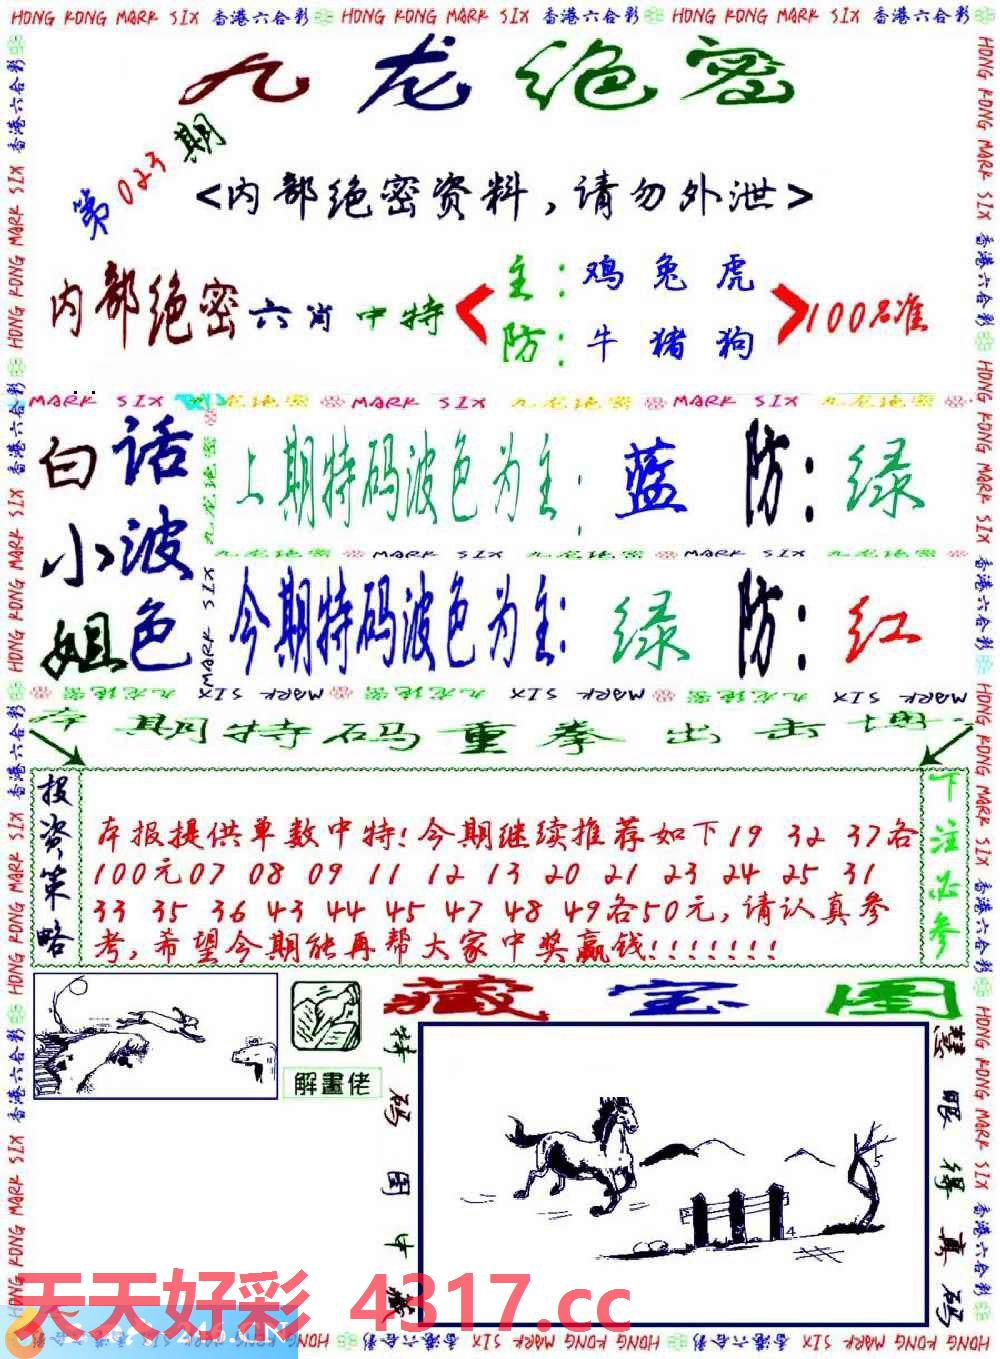 HONG KONG MARK SIX 香港六合彩 HONG KONG MARK SIX 香港六合彩 HONG KONG MARK SIX 香港六合彩
九龙绝密
第023期
<内部绝密资料,请勿外泄>
内部绝密六肖中特
主:鸡兔虎
防:牛猪狗
100名准
MARK SIX 九龙绝密 MARK SIX 九龙绝密 MARK SIX 九龙绝密
白小姐
话波色
上期特码波色为主:蓝 防:绿
九龙绝密 MARK SIX 九龙绝密 MARK SIX 九龙绝密
今期特码波色为主:绿 防:红
本期特码重拳出击
投资策略
本报提供单数中特!今期继续推荐如下19 32 37各
100元07 08 09 11 12 13 20 21 23 24 25 31
33 35 36 43 44 45 47 48 49各50元,请认真参
考,希望今期能再帮大家中奖赢钱!!!!!!!
下注必参
藏宝图
解畫佬
特码图中藏
慧眼得真码
5
4
天天好彩 4317.cc